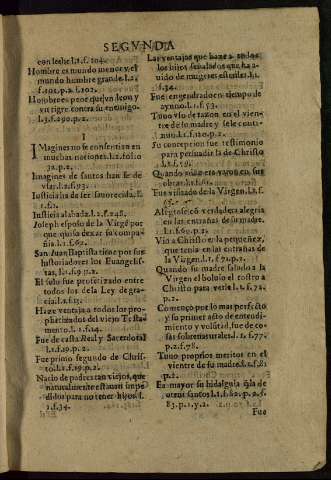 SEGVNDA
con leche l.1.f. 104.
Hombre es mundo menor, y el
mundo hombre grande l.2.
f.101.p.2. l.102.
Hombre es peor que un leon y
un tigre contra su enemigo.
l.3.f.290.p.2.
I
IMagines no se consentian en
muchas naciones. l.2.fol.10
32.p.2.
Imagines de santos han se de
l.2.f.93.
Iusticia ha de ser fauorecida. l.
1.f.2.
Iusticia alabada. l.2.f.248.
Ioseph esposo de la Virgē por
que quiso dexar su compa-
ñia. l.1.f.62.
San Iuan Baptista tiene por sus
historiadores los Euangelis-
tas, l.1.f.9.p.2.
El solo fue profetizado entre
todos los de la Ley de gra-
cia. l.1.f.13.
Haze ventaja a todos los pro-
phetizados del viejo Testa-
mento. l.1.f.14.
Fue de casta Real y Sacerdotal
l.1.f.19.p.2.
Fue primo segundo de Chris-
to. l.1.f.19.p.2.
Nacio de padres tan viejos, que
naturalmente estauan impe-
didos para no tener hijos. l.
1.f.34.
Las ventajas que haze a todos
los hijos señalados que ha a-
uido de mugeres esteriles. l.1.
f.34.
Fue engendrado en tiempo de
ayuno. l.1.f.53.
Tuuo vso de razon en el vien-
tre de su madre y se le conti-
nuo. l.1.f.120.p.2.
Su concepcion fue testimonio
para persuadir la de Christo
l.1.f.59.
Quando niño era varon en sus
obras. l.1.f.61.
Fue visitado de la Virgen. l.1.f.
65.
Alegrose có verdadera alegria
en las entrañas de su madre.
l.1.f.70.p.2.
Vio a Christo en la pequeñez,
que tenia en las entrañas de
la Virgen. l.1.f.71.p.2.
Quando su madre saludo a la
Virgen el boluio el rostro a
Christo para verle l.1.f.72.
p.2.
Començo por lo mas perfecto
y su primer acto de entendi-
miento y volūtad, fue de co-
sas sobrenaturales. l.1.f.77.
p.2.f.78.
Tuuo proprios meritos en el
vientre de su madre. l.1.f.81
p.2.
Es mayor su hidalguia q̃ la de
otros santos l.1.f.82.p.2.f.
83.p.1.y.2.
Fue